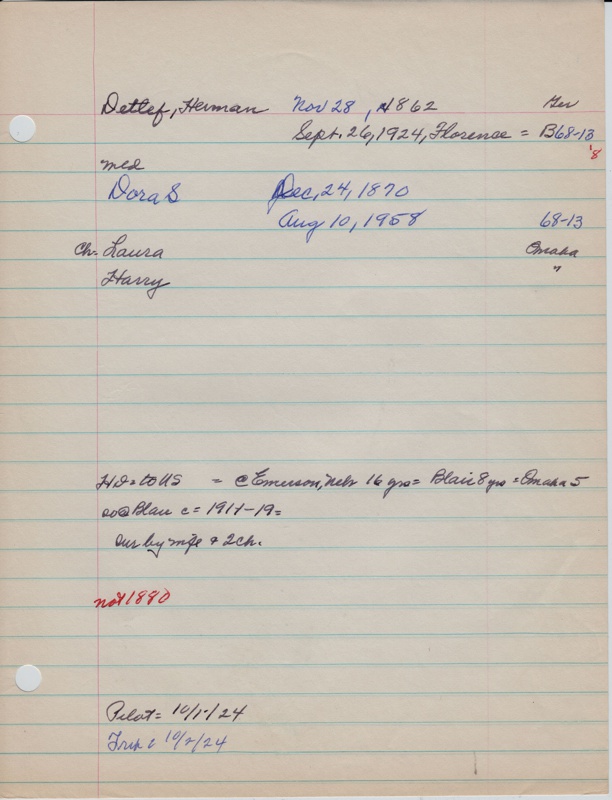 Detlef, Herman Nov 28, 1862 Ger
Sept. 26, 1924, Florence = B68-13
'8
med
Dora S Dec, 24, 1870
Aug 10, 1958 68-13
Ch. Laura Omaha
Harry "
HD = to US = @ Emerson, Nebr 16 yrs = Blair 8 yrs = Omaha 5
so @ Blair c = 1911-19 =
Sur by wife & 2 ch.
not 1880
Pilot = 10/1/24
10/2/24